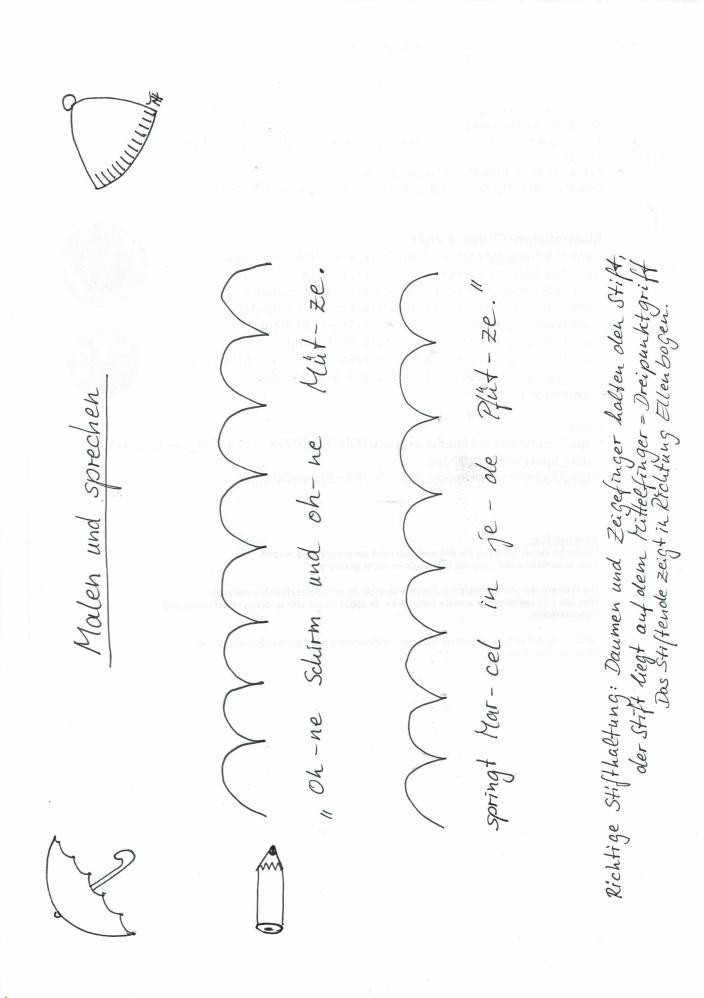 Malen und sprechen
„Oh-ne Schirm und oh-ne Müt-ze.
springt Mar-cel in je-de Pfüt-ze."
Richtige Stifthaltung: Daumen und Zeigefinger halten den Stift,
der Stift liegt auf dem Mittelfinger = Dreipunktgriff
Das Stiftende zeigt in Richtung Ellenbogen.